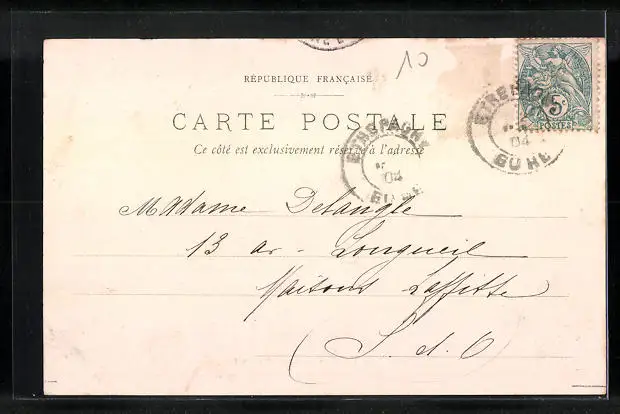 10
RÉPUBLIQUE FRANÇAISE
CARTE POSTALE
Ce côté est exclusivement réservé à l'adresse
5c
POSTES
ETREPAGNY
04
EURE
ETREPAGNY
04
EURE
Madame Delangle
13 av- Longueil
Maisons Laffitte
(S. d. O